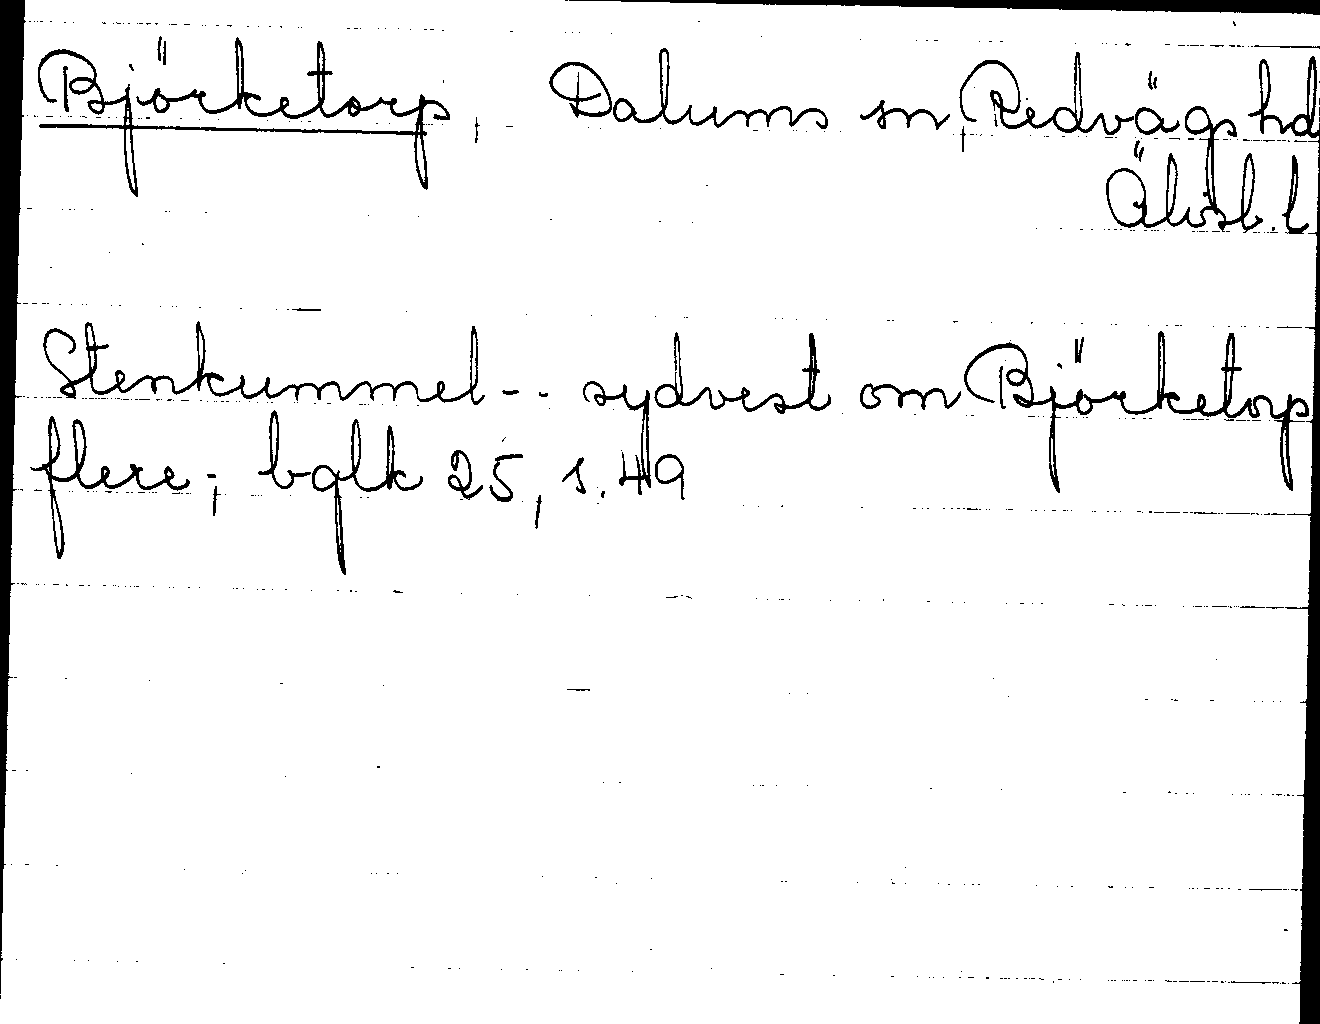 Björketorp, Dalums sn, Redvägs hd
Älvsb. l
Stenkummel - - sydvest om Björketorp
flere; bglk 25, s. 49